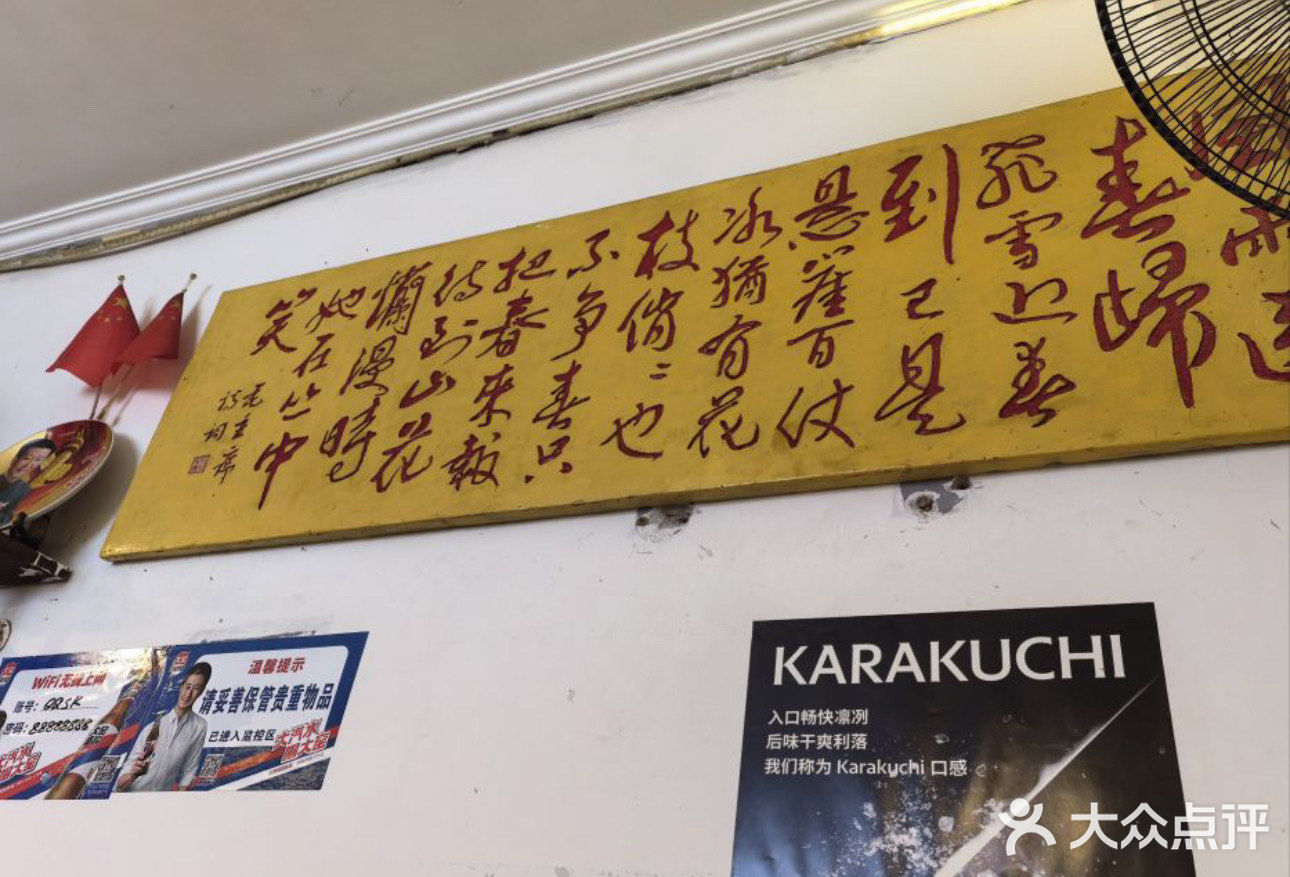 雨
春歸
飛雪迎春
到已是
悬崖百仗
冰猶有花
枝俏〻也
不争春只
把春来報
待到山花
爛漫時
她在丛中
笑
毛主席
诗詞
WiFi无线上网
账号：QRSK
密码：88888888
温馨提示
请妥善保管贵重物品
已进入监控区
大汽水
KARAKUCHI
入口畅快凛冽
后味干爽利落
我们称为 Karakuchi 口感
大众点评